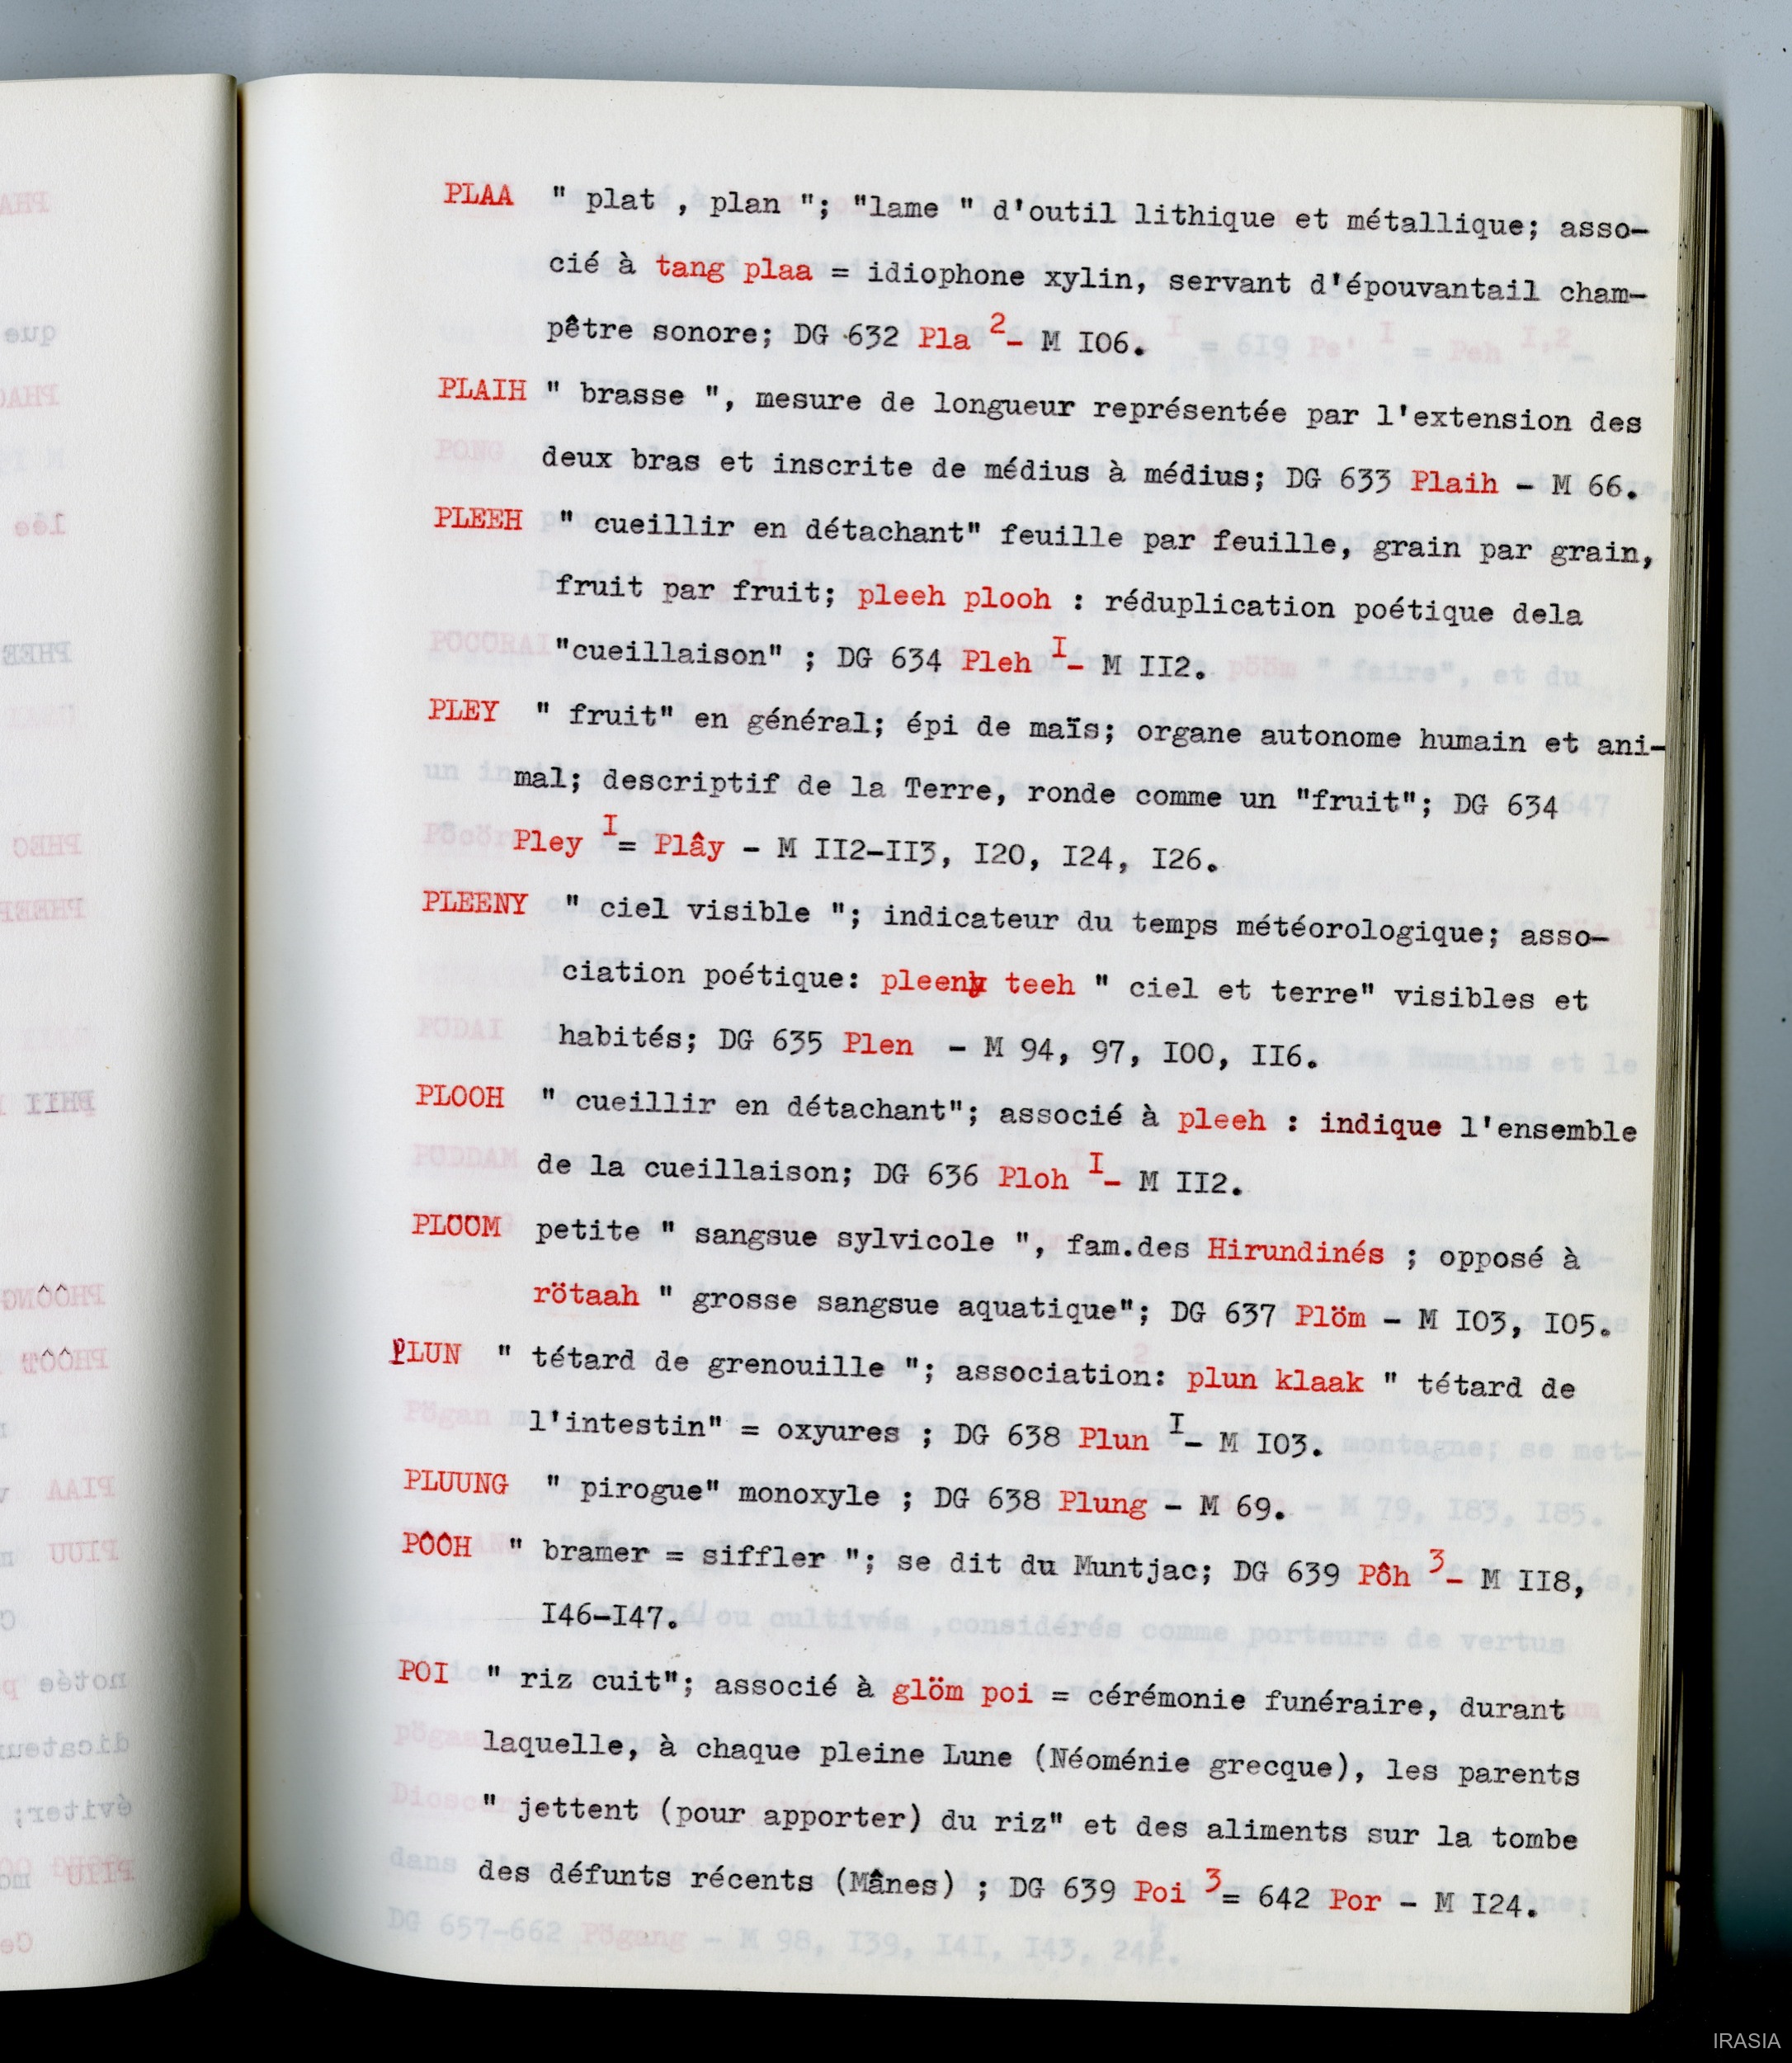 PLAA " plat , plan "; "lame " d'outil lithique et métallique; asso-
cié à tang plaa = idiophone xylin, servant d'épouvantail cham-
pêtre sonore; DG 632 Pla 2- M I06.
PLAIH " brasse ", mesure de longueur représentée par l'extension des
deux bras et inscrite de médius à médius; DG 633 Plaih - M 66.
PLEEH " cueillir en détachant" feuille par feuille, grain par grain,
fruit par fruit; pleeh plooh : réduplication poétique dela
"cueillaison" ; DG 634 Pleh I- M II2.
PLEY " fruit" en général; épi de maïs; organe autonome humain et ani-
mal; descriptif de la Terre, ronde comme un "fruit"; DG 634
Pley I= Plây - M II2-II3, I20, I24, I26.
PLEENY " ciel visible "; indicateur du temps météorologique; asso-
ciation poétique: pleeny teeh " ciel et terre" visibles et
habités; DG 635 Plen - M 94, 97, I00, II6.
PLOOH " cueillir en détachant"; associé à pleeh : indique l'ensemble
de la cueillaison; DG 636 Ploh I- M II2.
PLOOM petite " sangsue sylvicole ", fam.des Hirundinés ; opposé à
rötaah " grosse sangsue aquatique"; DG 637 Plöm - M I03, I05.
PLUN " tétard de grenouille "; association: plun klaak " tétard de
l'intestin" = oxyures ; DG 638 Plun I- M I03.
PLUUNG " pirogue" monoxyle ; DG 638 Plung - M 69.
PÔÔH " bramer = siffler "; se dit du Muntjac; DG 639 Pôh 3- M II8,
I46-I47.
POI " riz cuit"; associé à glöm poi = cérémonie funéraire, durant
laquelle, à chaque pleine Lune (Néoménie grecque), les parents
" jettent (pour apporter) du riz" et des aliments sur la tombe
des défunts récents (Mânes) ; DG 639 Poi 3= 642 Por - M I24.
IRASIA